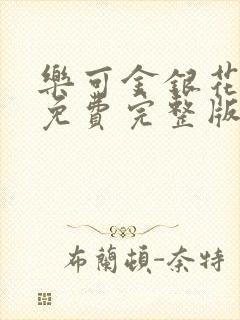 樂可金銀花
免費完整版
布蘭頓-奈特